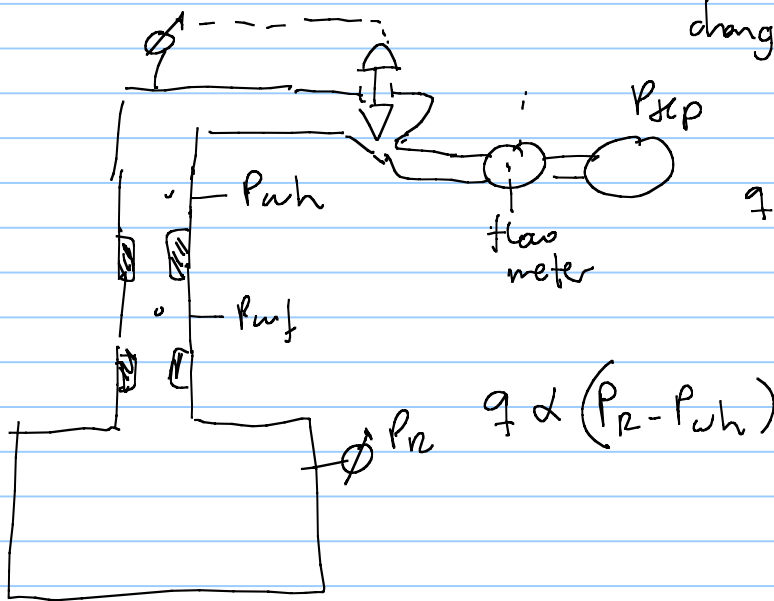 chang
Psep
q
Pwh
flow
meter
Pwf
q ∝ (PR - Pwh)
PR